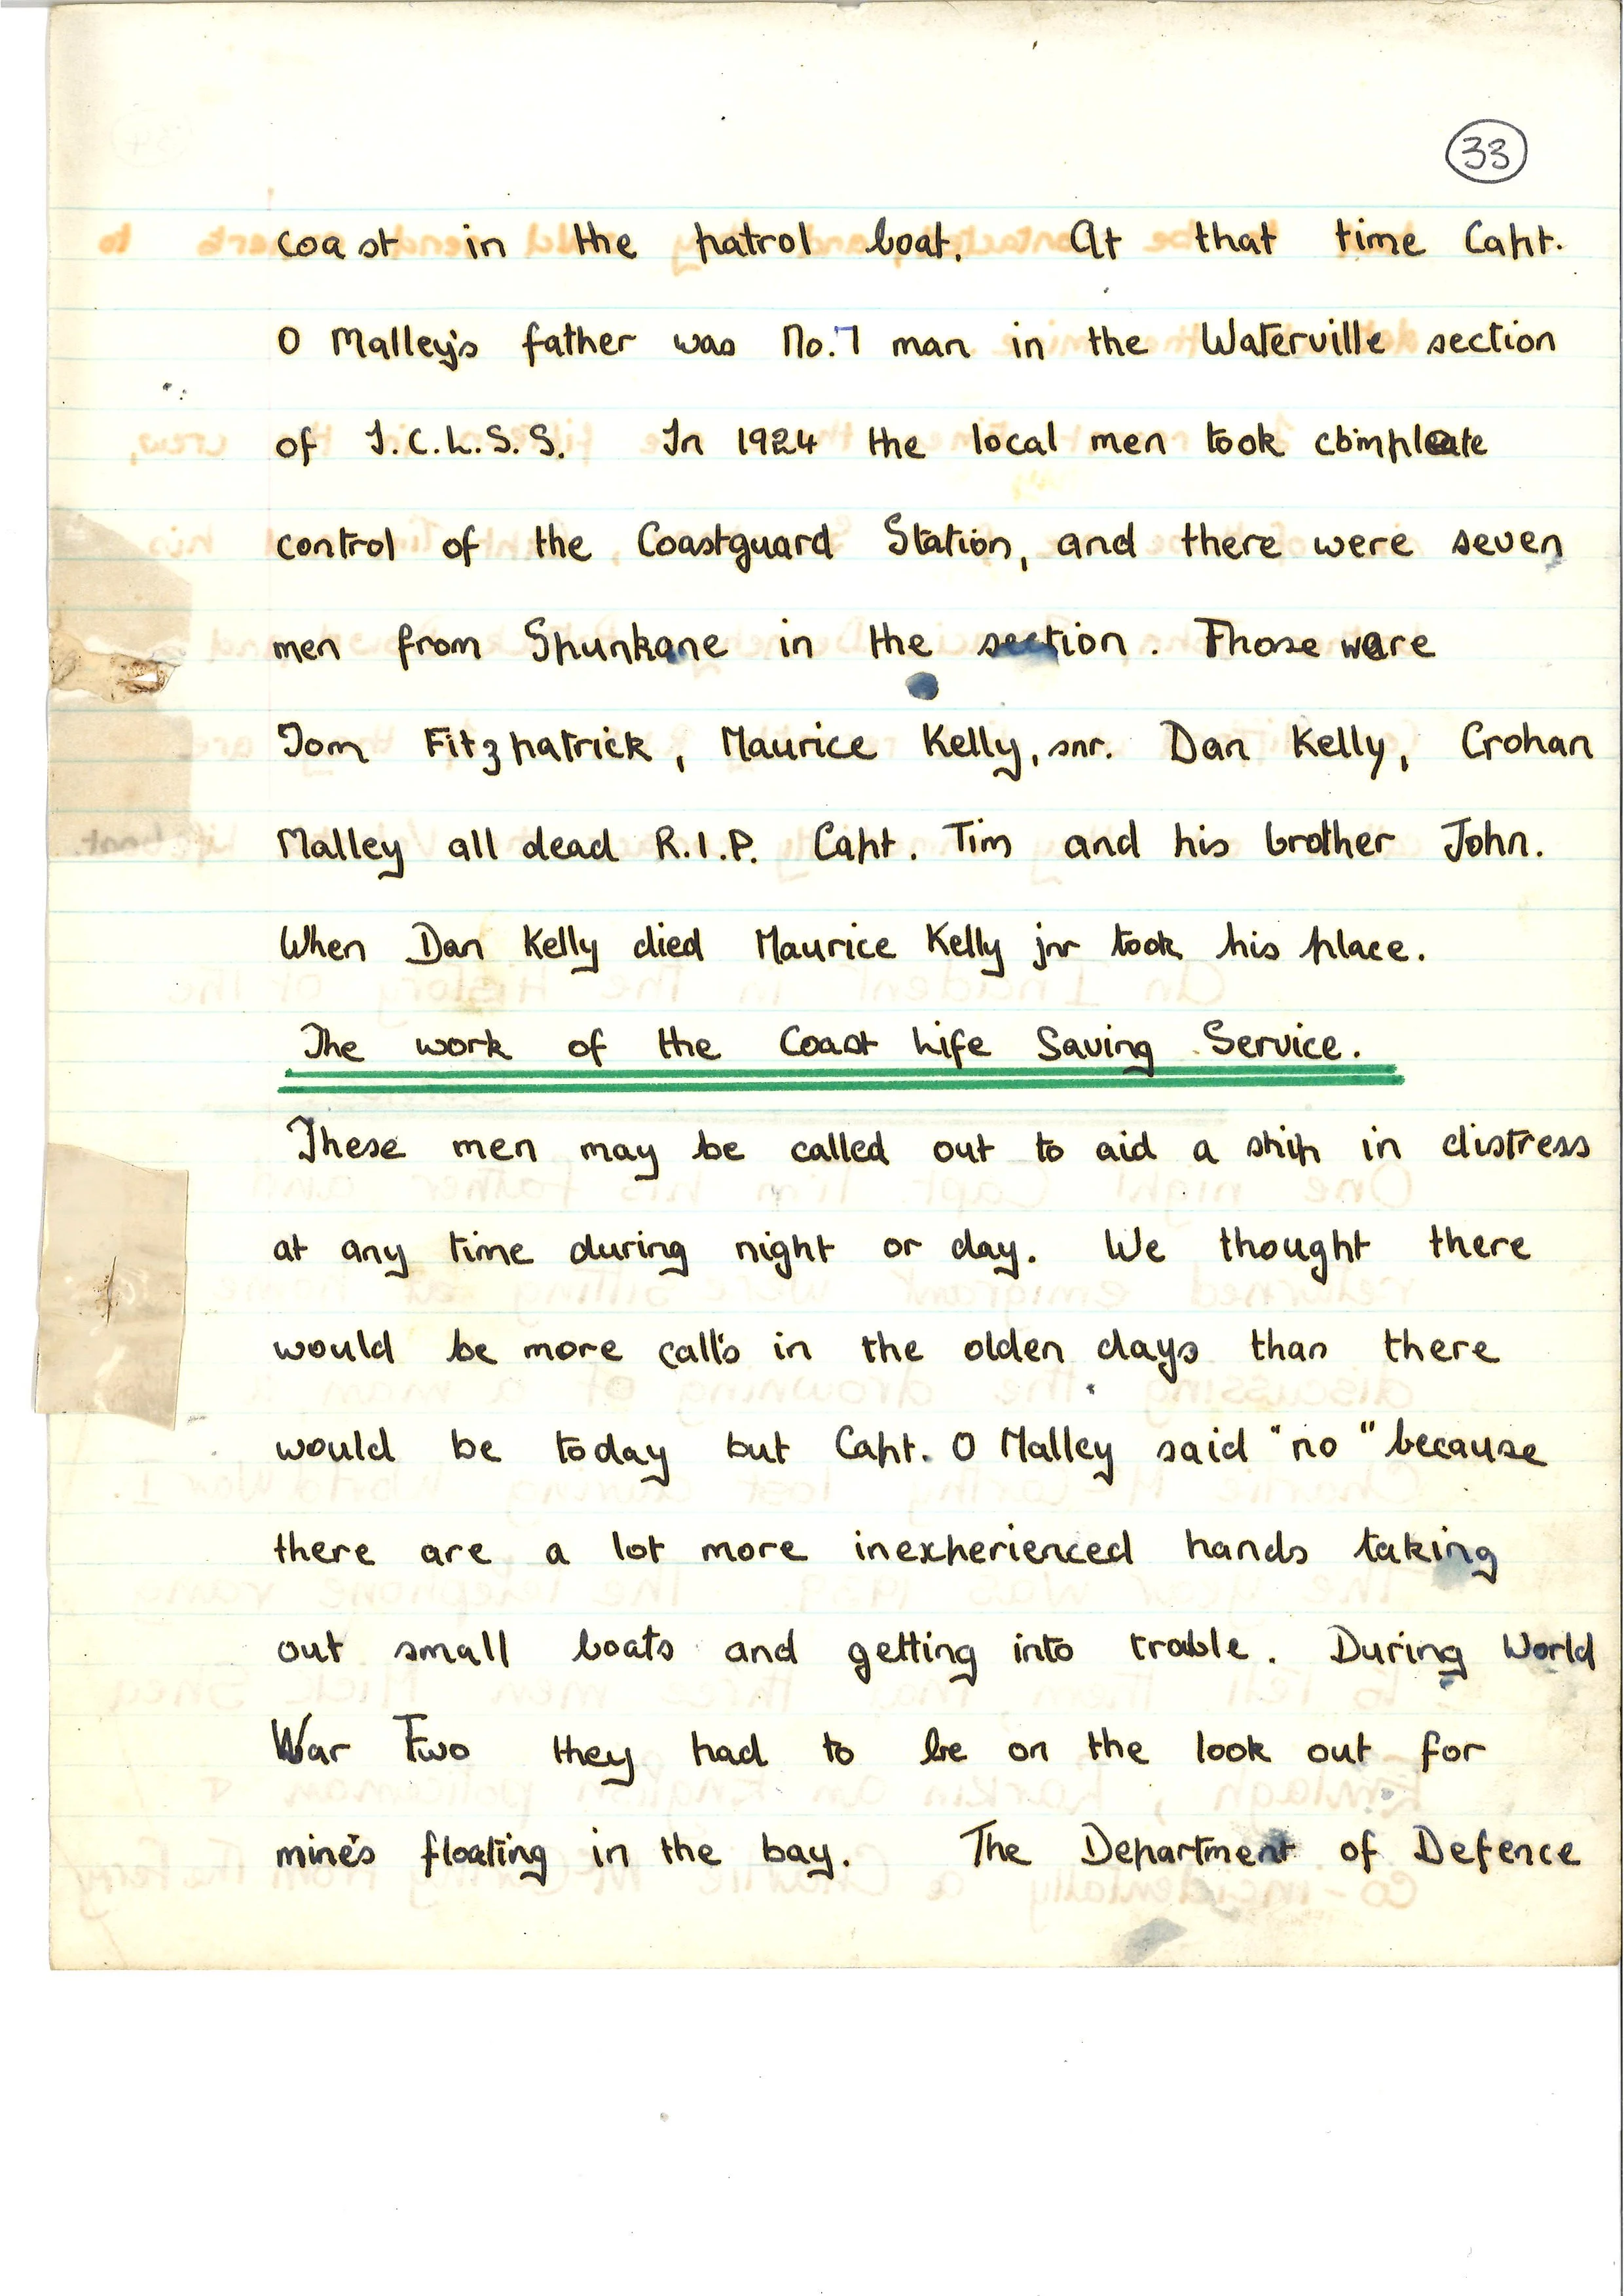 33
coast in the patrol boat. At that time Capt.
O Malley's father was No. 7 man in the Waterville section
of I.C.L.S.S. In 1924 the local men took compleate
control of the Coastguard Station, and there were seven
men from Spunkane in the section. Those were
Tom Fitzpatrick, Maurice Kelly, snr. Dan Kelly, Crohan
Malley all dead R.I.P. Capt. Tim and his brother John.
When Dan Kelly died Maurice Kelly jnr took his place.
The work of the Coast Life Saving Service.
These men may be called out to aid a ship in distress
at any time during night or day. We thought there
would be more call's in the olden days than there
would be today but Capt. O Malley said "no" because
there are a lot more inexperienced hands taking
out small boats and getting into trouble. During World
War Two they had to be on the look out for
mine's floating in the bay. The Department of Defence